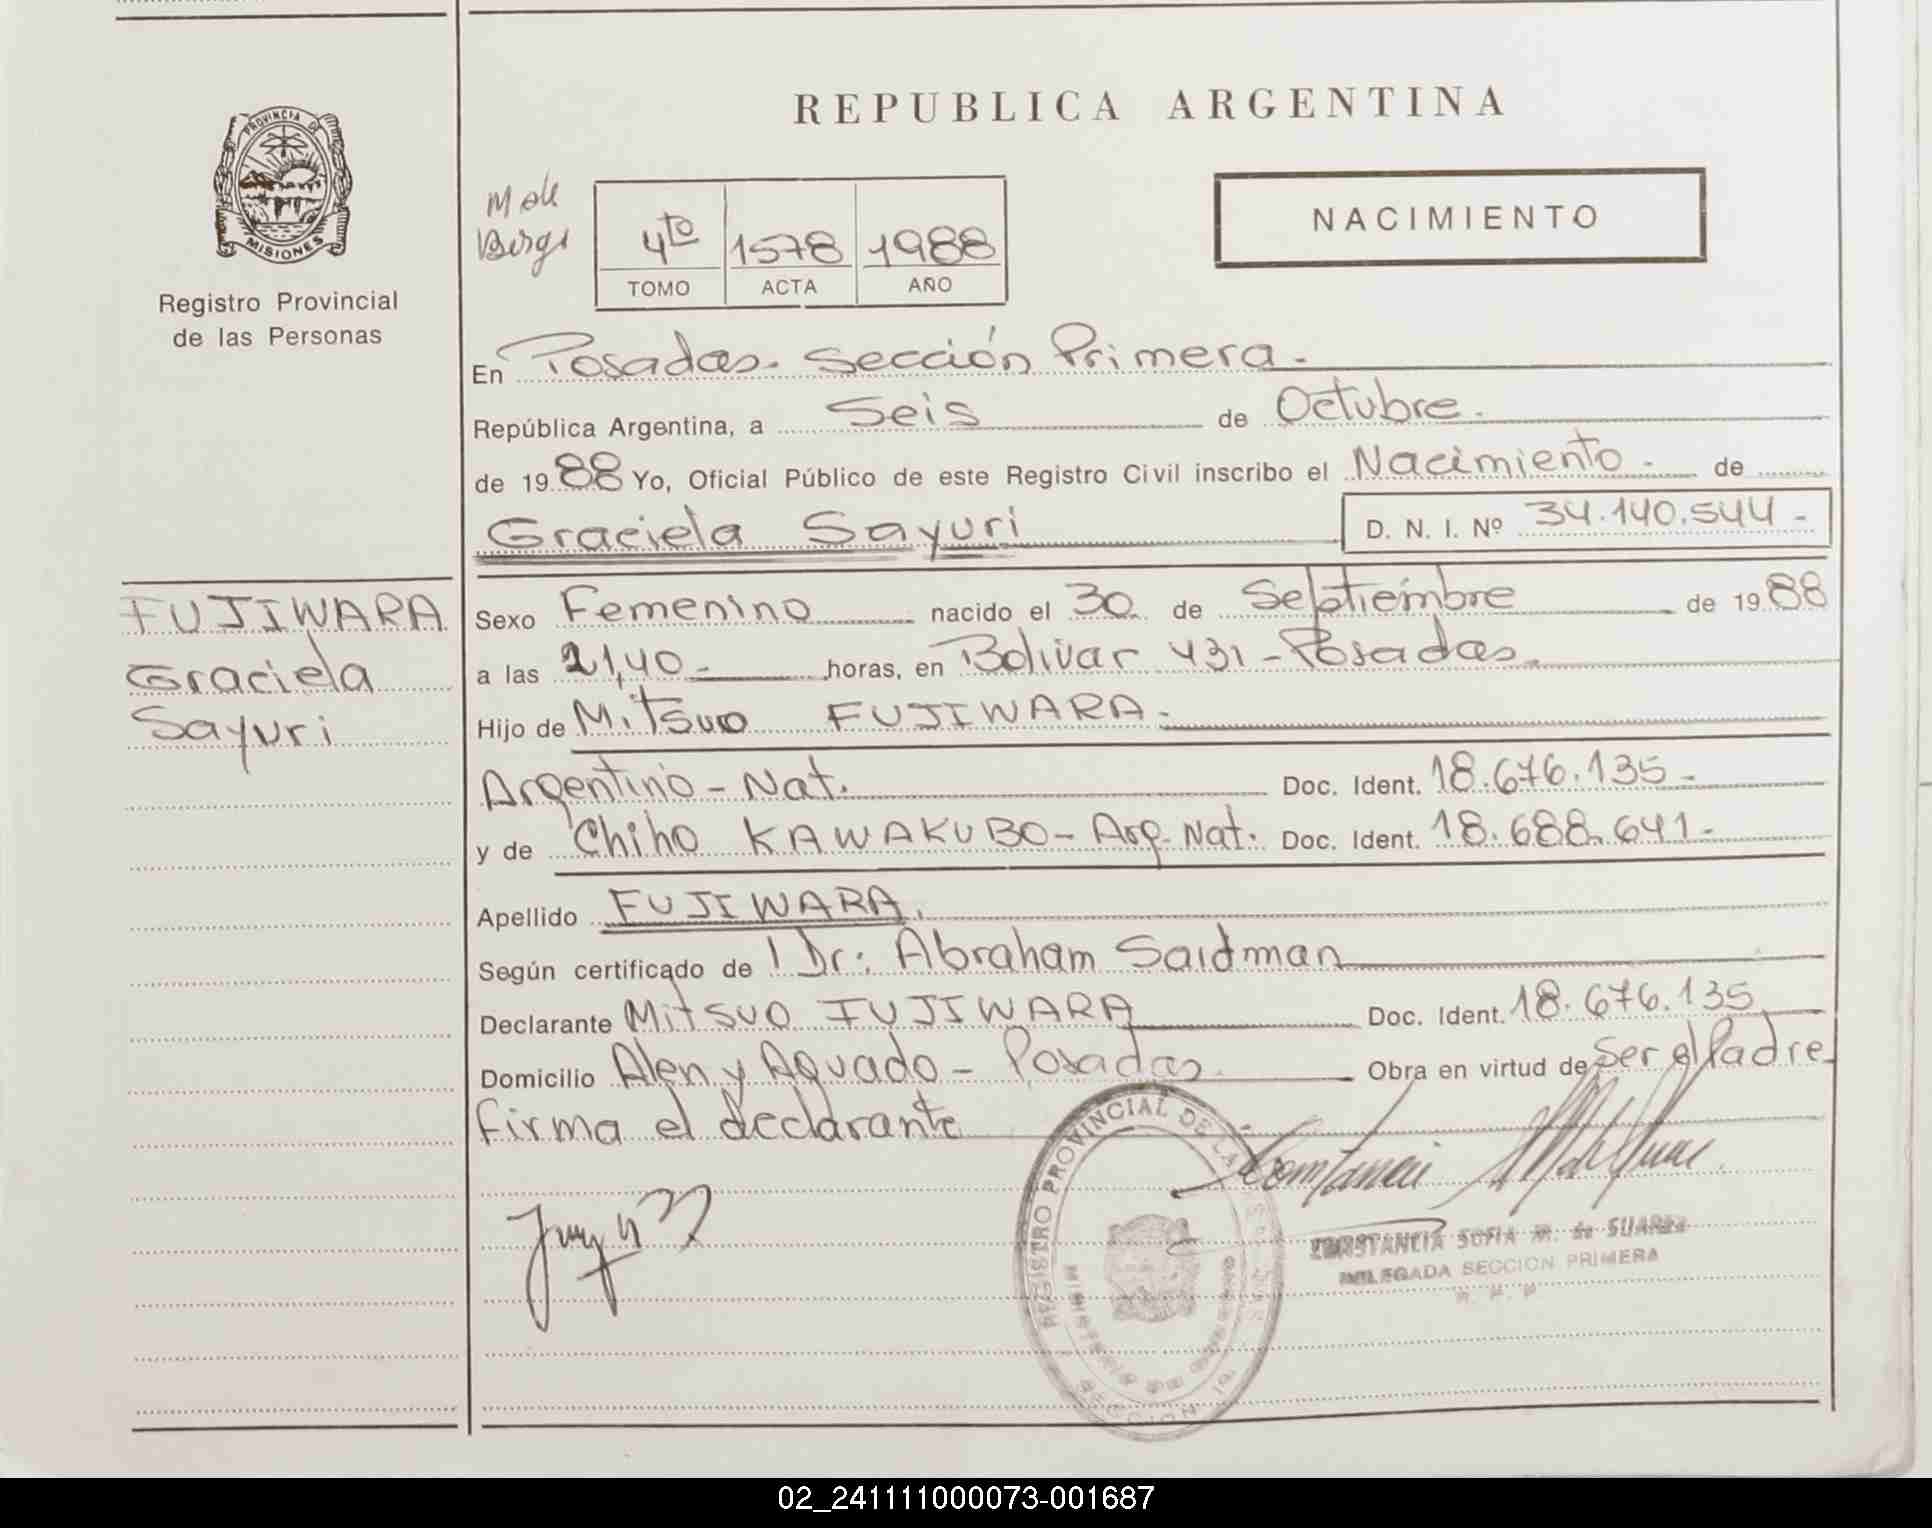 PROVINCIA DE
MISIONES
Registro Provincial
de las Personas
FUJIWARA
Graciela
Sayuri
REPUBLICA ARGENTINA
4to 1578 1988
TOMO ACTA AÑO
NACIMIENTO
En Posadas. Sección Primera.
República Argentina, a Seis de Octubre.
de 1988 Yo, Oficial Público de este Registro Civil inscribo el Nacimiento de
Graciela Sayuri D. N. I. Nº 34.140.544-
Sexo Femenino nacido el 30 de Septiembre de 1988
a las 21,40 horas, en Bolivar 431 - Posadas.
Hijo de Mitsuo FUJIWARA.
Argentino - Nat. Doc. Ident. 18.676.135-
y de Chiho KAWAKUBO - Arg. Nat. Doc. Ident. 18.688.641-
Apellido FUJIWARA.
Según certificado de Dr: Abraham Saidman
Declarante Mitsuo FUJIWARA Doc. Ident. 18.676.135
Domicilio Alen y Aguado - Posadas. Obra en virtud de Ser el Padre
firma el declarante
REGISTRO PROVINCIAL DE LAS
SECCION 1ª
CONSTANCIA SOFIA M. de SUAREZ
DELEGADA SECCION PRIMERA
02_241111000073-001687